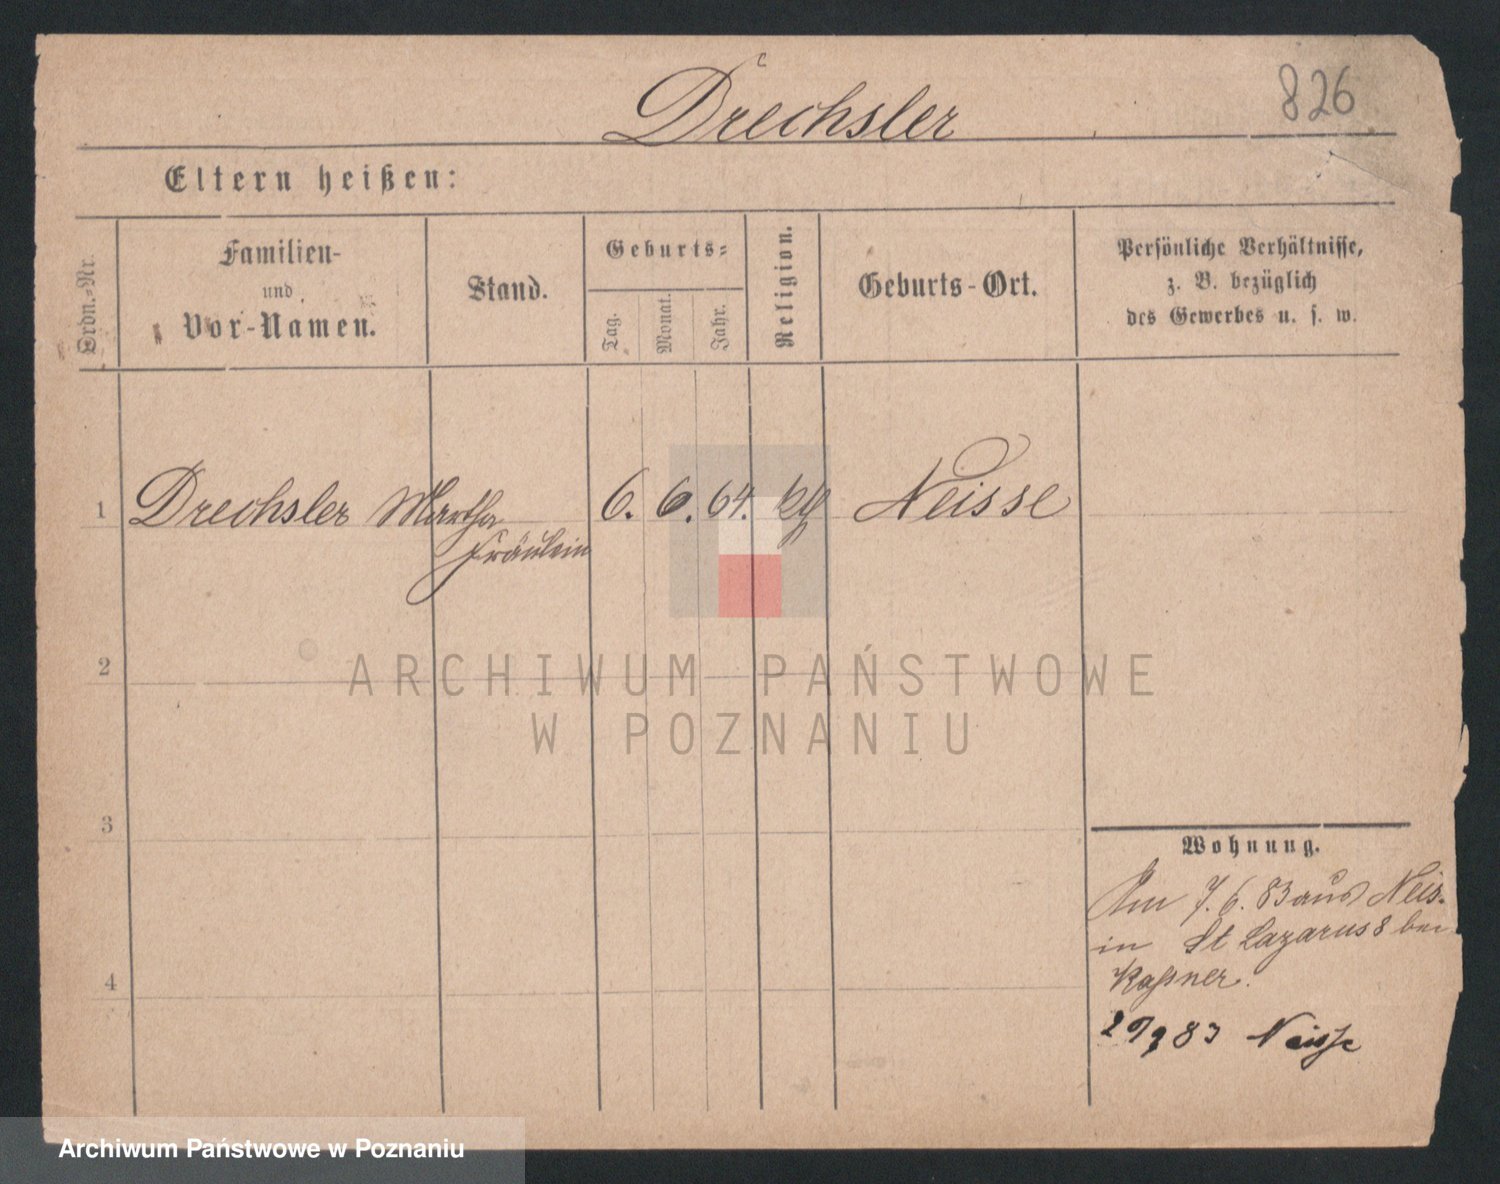 Drechsler
826
Eltern heißen:
Ordn.-Nr.
Familien-
und
Vor-Namen.
Stand.
Geburts-
Tag.
Monat.
Jahr.
Religion.
Geburts-Ort.
Persönliche Verhältnisse,
z. B. bezüglich
des Gewerbes u. s. w.
1 Drechsler Martha 6. 6. 64. Neisse
Fräulein
2
3
4
Wohnung.
Am 7. 6. 83 aus Neis.
in St Lazarus 8 bei
Kaßner.
83 Neisse
ARCHIWUM PAŃSTWOWE
W POZNANIU
Archiwum Państwowe w Poznaniu